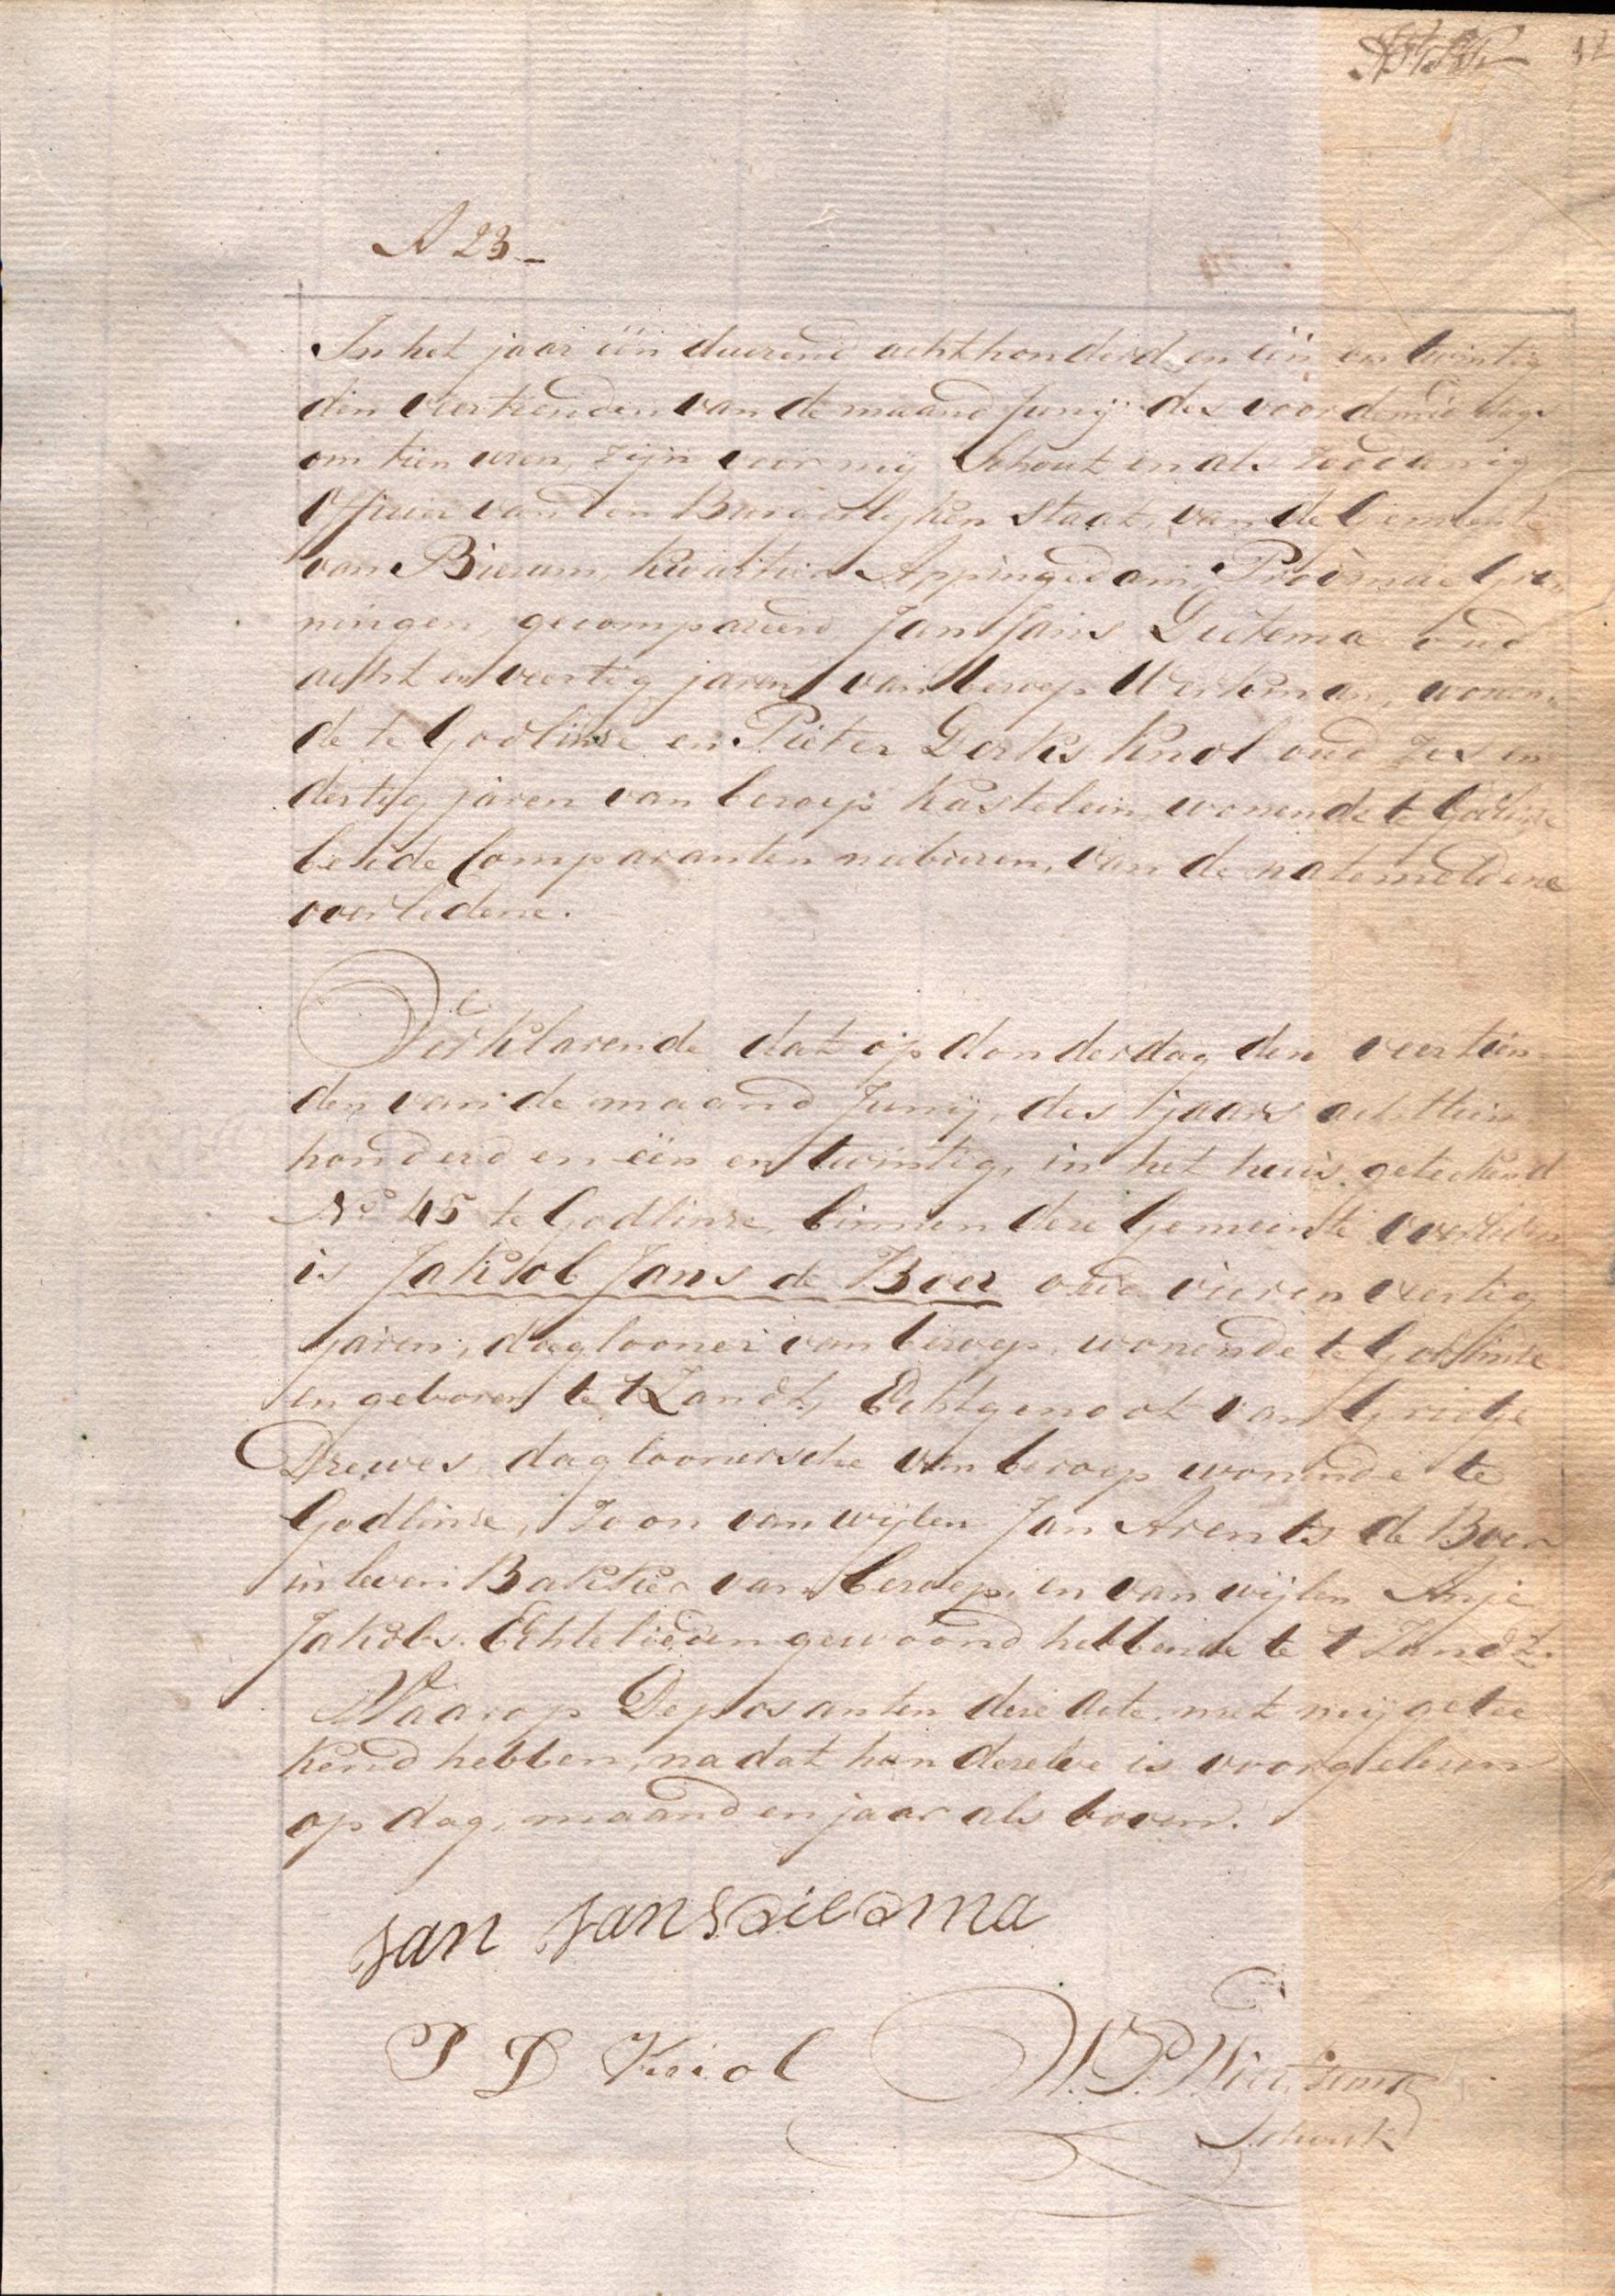 A 23
In het jaar één duizend achthonderd en één en twintig
den veertienden van de maand Junij des voordemiddags
om tien uren, zijn voor mij Schout en als zoodanig
Officier van den Burgerlijken Staat, van de Gemeente
van Bierum Kwartier Appingedam, Provincie Gro„
ningen, gecompareerd Jan Jans Dietema oud
acht en veertig jaren van beroep Werkman, wonen„
de te Godlinze en Pieter Derks Knol oud zes en
dertig jaren van beroep Kastelein, wonende te Godlinze
beide Comparanten naburen, van de natemeldene
overledene.
Verklarende dat op donderdag den veertien
den van de maand Junij, des Jaars achttien
honderd en één en twintig, in het huis getekend
No 45 te Godlinze, binnen deze Gemeente overleden
is Jakob Jans de Boer oud vier en veertig
jaren, daglooner van beroep, wonende te Godlinze
en geboren te t Zandt, Echtgenoot van Grietje
Drewes, dagloonersche van beroep wonende te
Godlinze, Zoon van wijlen Jan Arents de Boer
in leven Bakker van beroep, en van wijlen Anje
Jakobs. Echtelieden gewoond hebbende te t Zandt.
Waarop Deposanten deze Acte, met mij getee
kend hebben, na dat hun dezelve is voorgelezen
op dag, maand en jaar als boven.
Jan Jans diedma
P D Knol
Schout